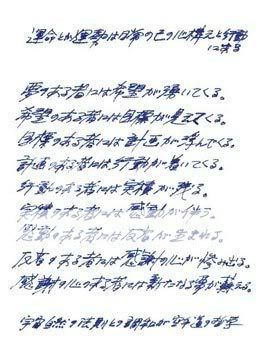 運命とか運勢は日常の己の心構えと行動
に宿る
夢のある者には希望が湧いてくる。
希望のある者には目標が見えてくる。
目標のある者には計画が浮んでくる。
計画のある者には行動が着いてくる。
行動のある者には実績が残る。
実績のある者には感動が伴う。
感動のある者には反省が生まれる。
反省のある者には感謝の心が修み出る。
感謝の心のある者には新たなる夢が蘇える。
宇宙自然の法則との調和が空手道の哲学